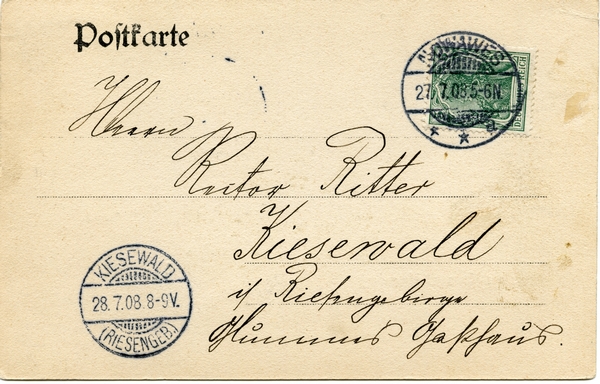 Postkarte
NOWAWES
27. 7.08.5-6N
* * a
Herrn
Rector Ritter
Kiesewald
i/ Riesengebirge
Gasthaus.
KIESEWALD
28.7.08.8-9V.
(RIESENGEB.)